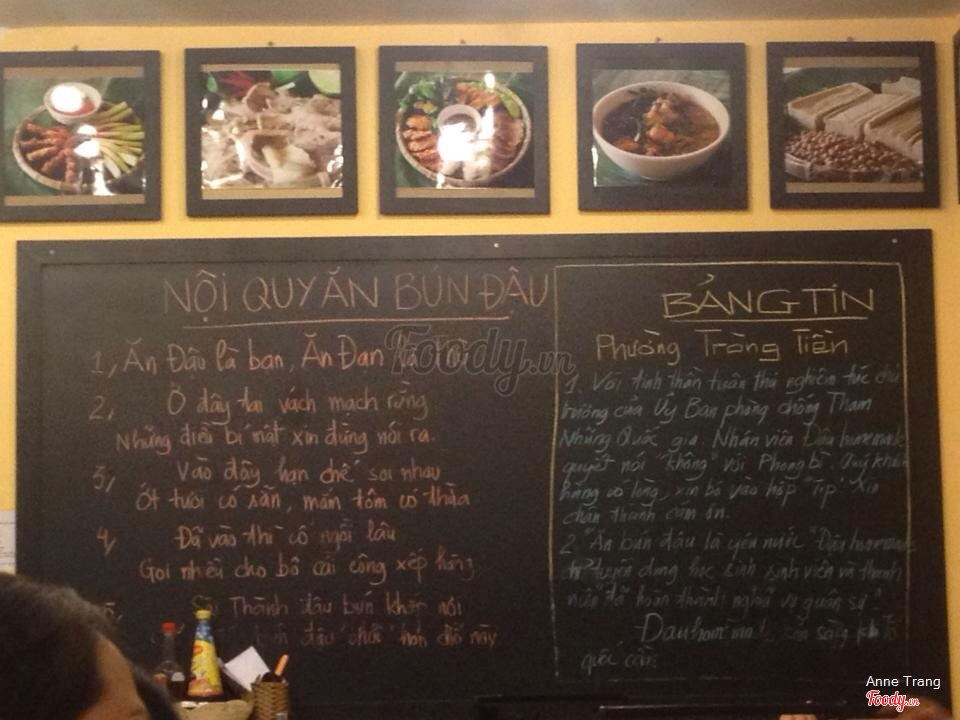 NỘI QUY ĂN BÚN ĐẬU
1, Ăn Đậu là bạn, Ăn Đạn là Thù
2, Ở đây tai vách mạch rừng
Những điều bí mật xin đừng nói ra.
3, Vào đây hạn chế soi nhau
Ớt tươi có sẵn, mắm tôm có thừa
4, Đã vào thì cố ngồi lâu
Gọi nhiều cho bõ cái công xếp hàng
5, Sài Thành đậu bún khắp nơi
bún đậu "chửi" hơn chỗ này
BẢNG TIN
Phường Tràng Tiền
1. Với tinh thần tuân thủ nghiêm túc chủ
trương của Ủy Ban phòng chống Tham
Nhũng Quốc gia. Nhân viên Đậu homemade
quyết nói "không" với Phong bì. Quý khách
hàng có lòng, xin bỏ vào hộp "Tip". Xin
chân thành cảm ơn.
2. "Ăn bún đậu là yêu nước" Đậu homemade
chỉ tuyển dụng học sinh sinh viên và thanh
niên đã hoàn thành nghĩa vụ quân sự.
Đậu homemade sẵn sàng khi Tổ
quốc cần
Foody.vn
Anne Trang
Foody.vn